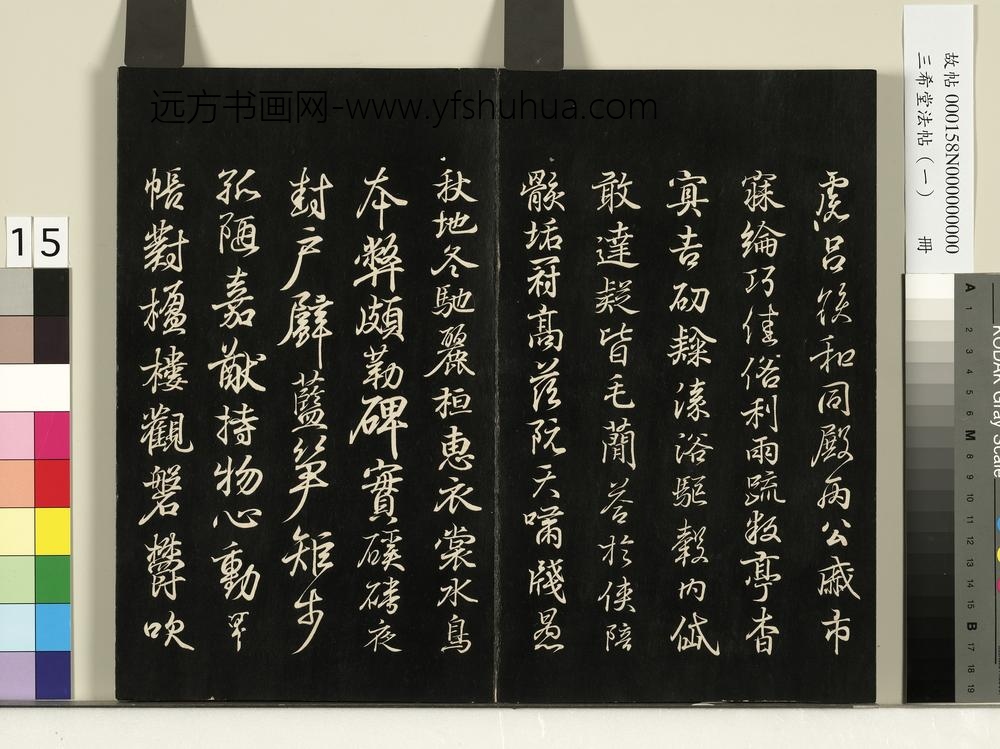 呂和同殿公戚市
寐綸巧佳俗利雨疏亭杳
寘去躁浴驅轂内
敢達疑皆毛蘭荅於俠陪
骸垢冠高茂阮天嘯牋愚
秋地冬馳麗桓惠衣裳水鳥
本弊頗勒碑實磻夜
封户壁藍筆矩步
孤陋嘉猷持物心動
帳對楹樓觀磐鬱吹
远方书画网-www.yfshuhua.com
故帖 000158N000000000
三希堂法帖（一） 册
15
KODAK Gray Scale
A 1 2 3 4 5 6 M 8 9 10 11 12 13 14 15 B 17 18 19